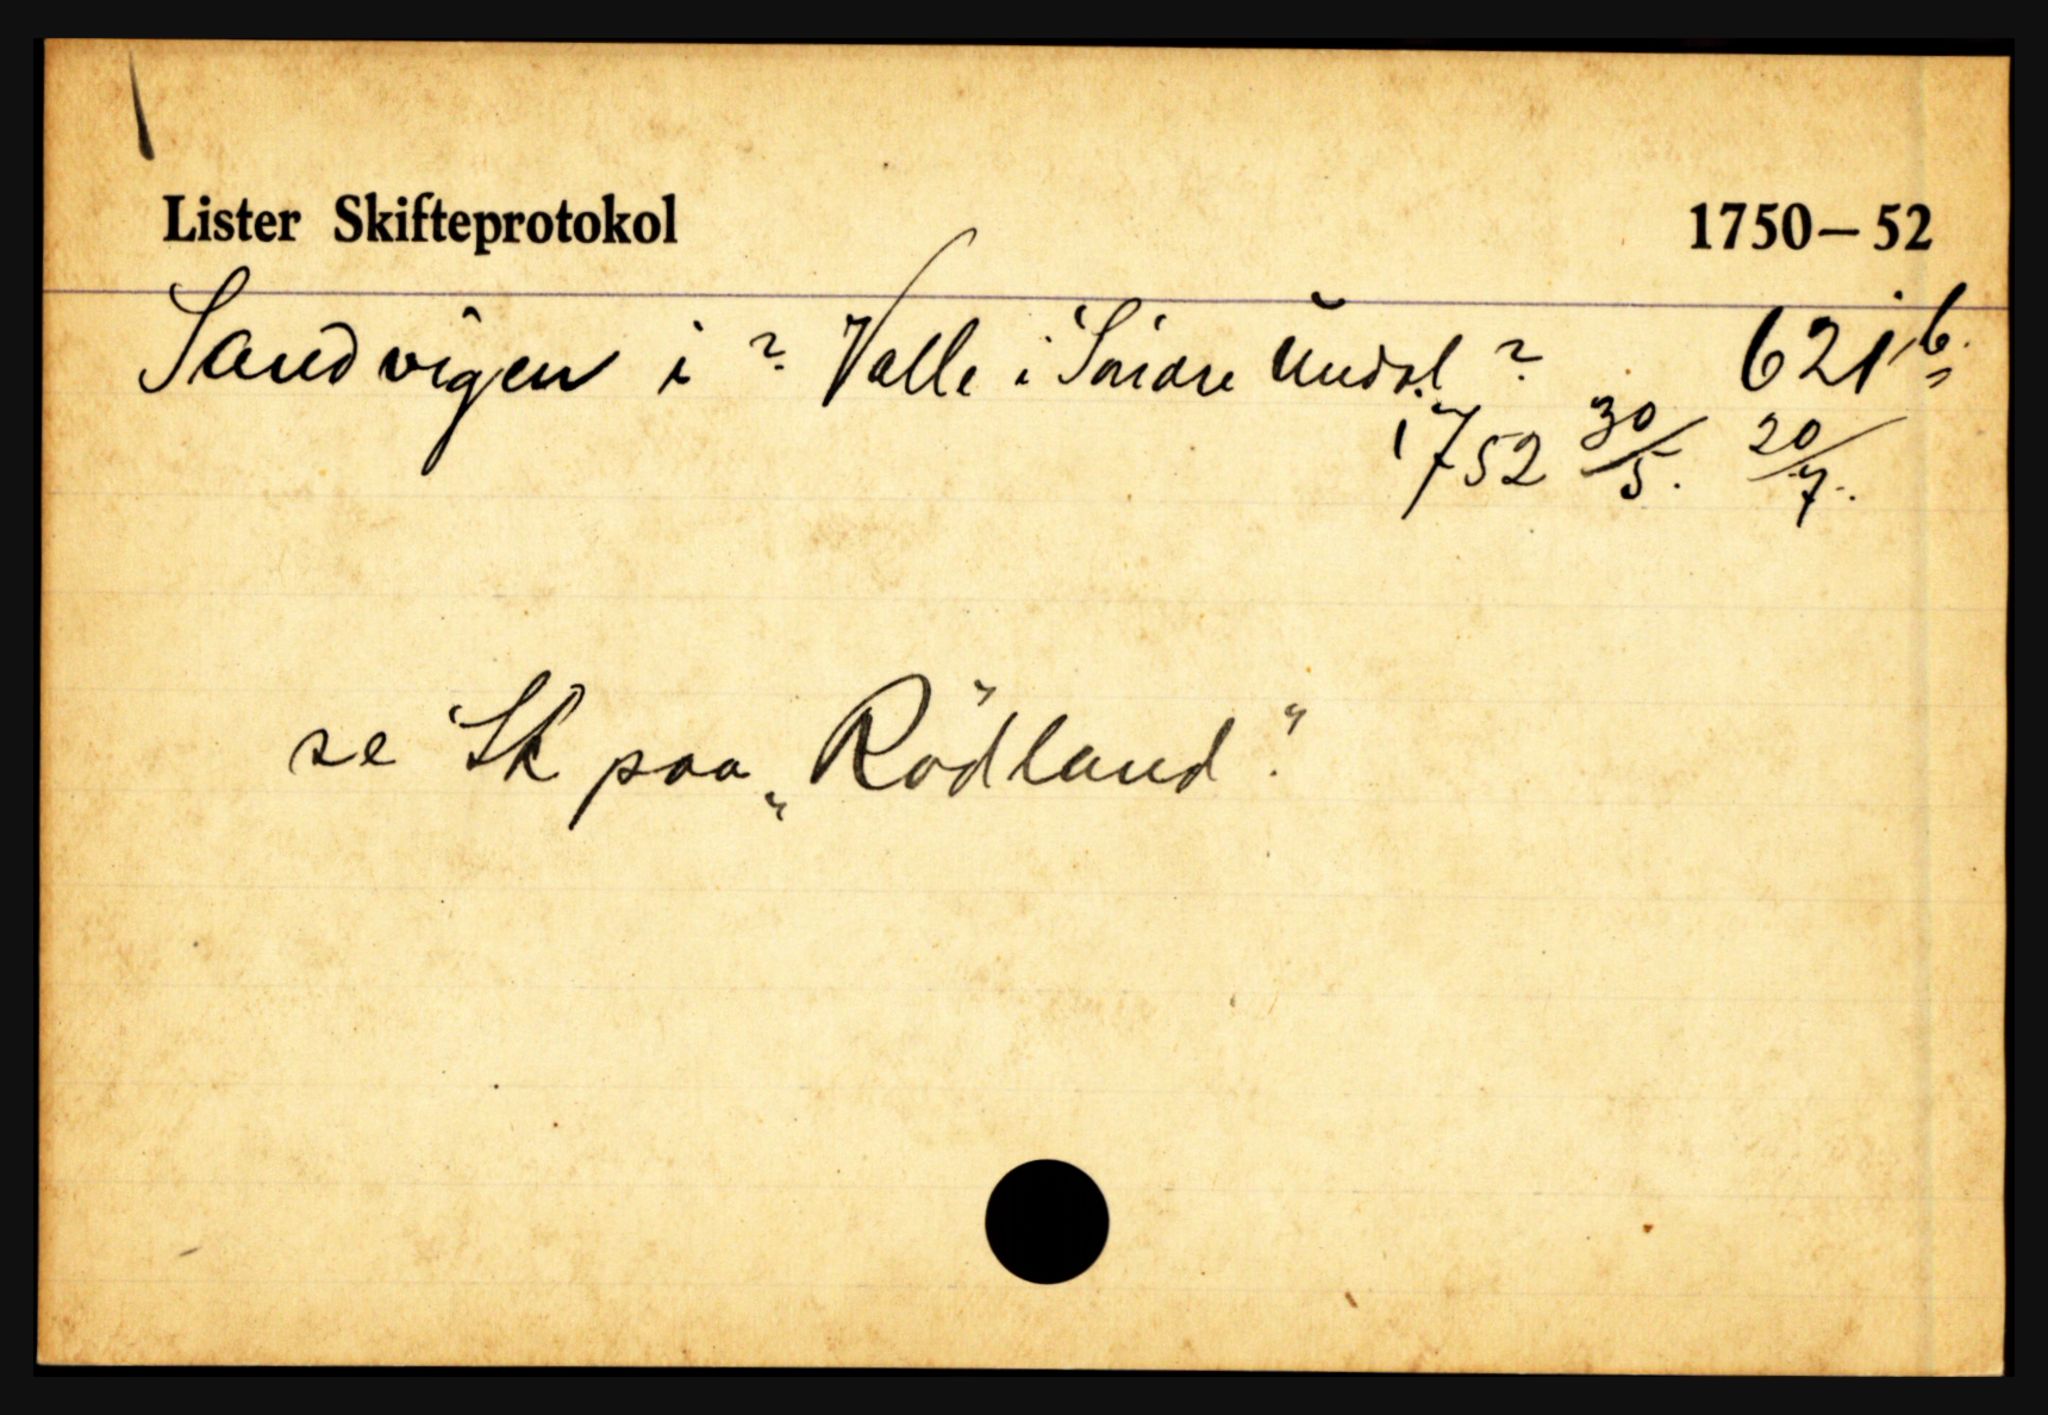 Lister Skifteprotokol 1750–52
Sandvigen i ? Valle i Söndre Undal ? 621 b.
1752 30/5. 20/7.
se Sk paa „Rödland“.